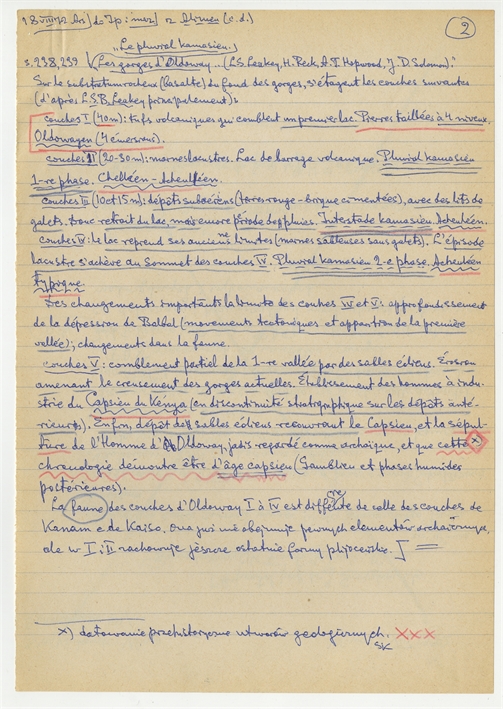 18 VIII 72
(c.d.)
2
"Le pluvial kamasien."
s. 238, 239 "Les gorges d'Oldoway... (L.S. Leakey, H. Reck, A.T. Hopwood, J.D. Solomon)."
Sur le substratum rocheux (basalte) du fond des gorges, s'étagent les couches suivantes
(d'après L.S.B. Leakey principalement):
couches I (40m): tufs volcaniques qui comblent un premier lac. Pierres taillées à 4 niveaux.
Oldowayen (4 émersions).
couches II (20-30m): marnes lacustres. Lac de barrage volcanique. Pluvial kamasien
1-re phase. Chelléen-Acheulléen.
couches III (10 et 15m): dépôts subaériens (terres rouge-brique cimentées), avec des lits de
galets. Donc retrait du lac, mais encore période des pluies. Interstade kamasien Acheuléen.
couches IV: le lac reprend ses anciennes limites (marnes sableuses sans galets). L'épisode
lacustre s'achève au sommet des couches IV. Pluvial kamasien 2-e phase. Acheuléen
typique.
Des changements importants la limite des couches IV et V: approfondissement
de la dépression de Balbal (mouvements tectoniques et apparition de la première
vallée); changements dans la faune.
couches V: comblement partiel de la 1-re vallée par des sables éoliens. Érosion
amenant le creusement des gorges actuelles. Établissement des hommes à indu-
strie du Capsien du Kénya (en discontinuité stratigraphique sur les dépôts anté-
rieurs). Enfin, dépôt des sables éoliens recouvrant le Capsien, et la sépul-
ture de l'Homme d'Oldoway, jadis regardé comme archaïque, et que cette x)
chronologie démontre être d'âge capsien (Gamblien et phases humides
postérieures).
La faune des couches d'Oldoway I à IV est différente de celle des couches de
Kanam e de Kaiso. Ona już nie obejmuje pewnych elementów archaicznych,
ale w I i II zachowuje jeszcze ostatnie formy pliocenskie.]
x) datowanie prehistoryczne utworów geologicznych. xxx
SK